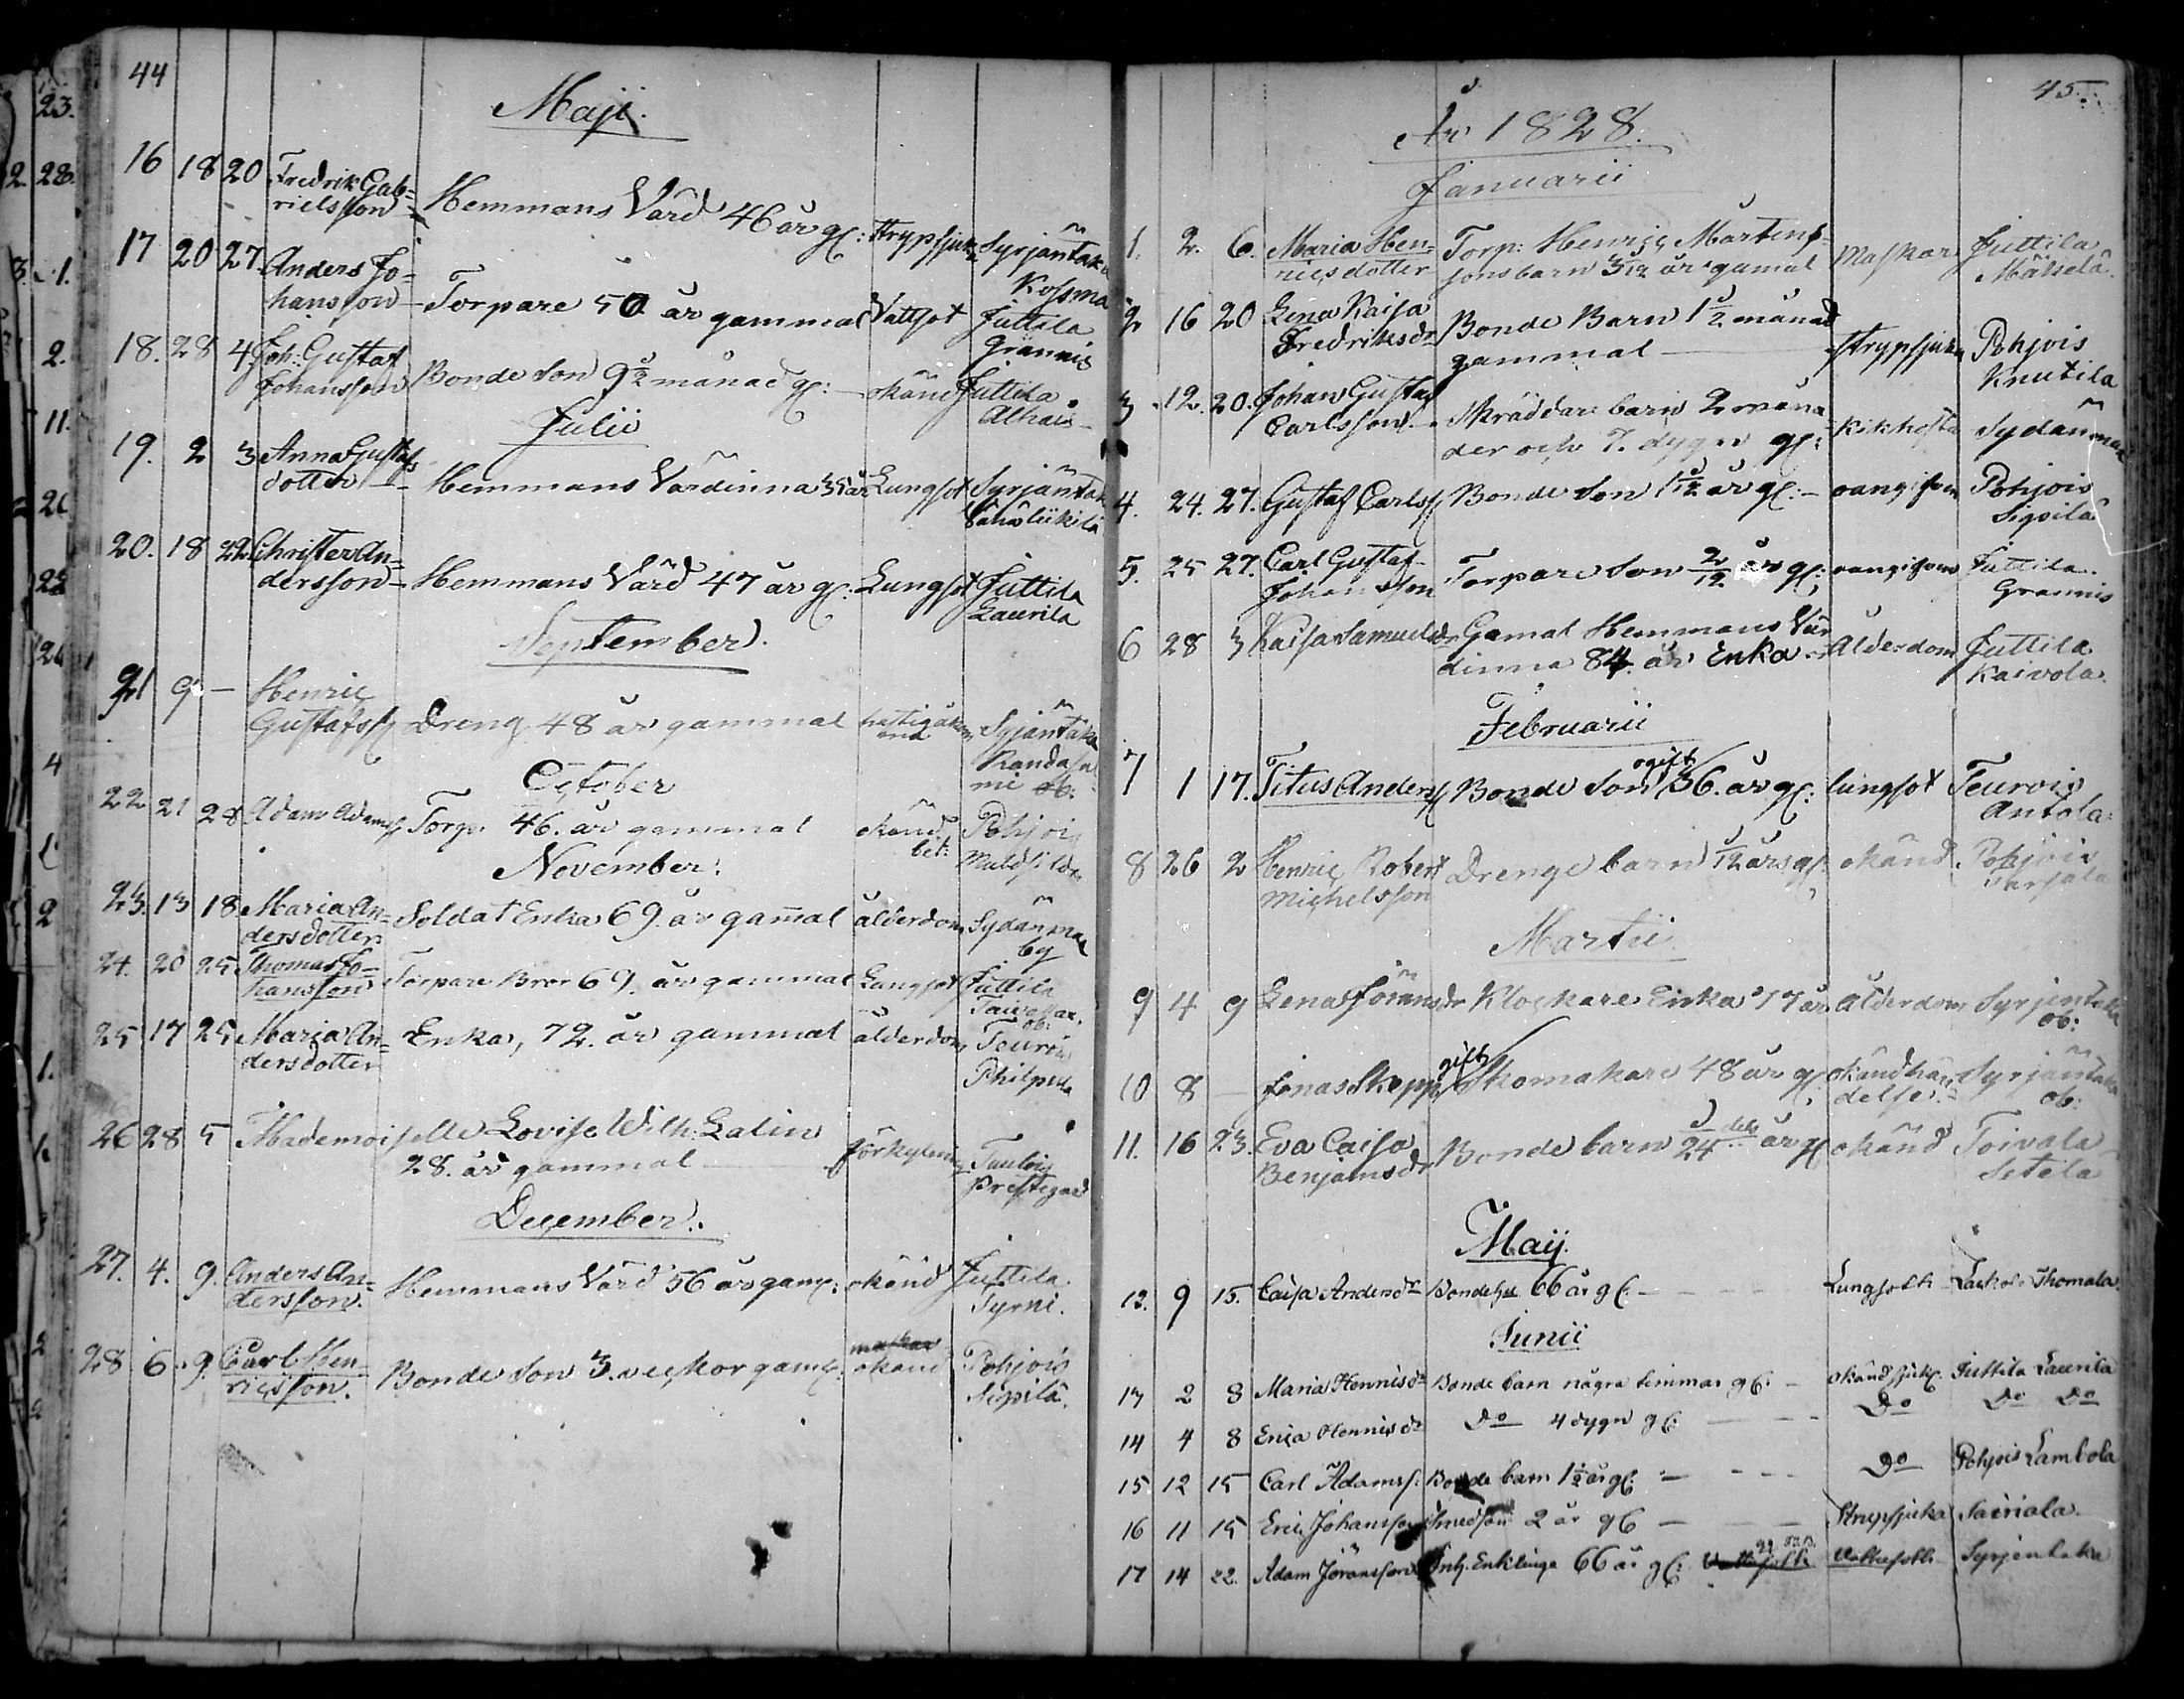 44
Maji.
16 18 20 Fredrik Gab=
rielsson Hemmans Värd 46 år gl: strypsjuka Syrjäntaka
Kossma
17 20 27. Anders Jo=
hansson Torpare 50 år gammal Vattsot Juttila
Grannis
18. 28 4 Joh: Gustaf
Johansson Bonde Son 9 1/2 månad gl: okänd Juttila
Julii
19. 2 3 Anna Gustafs
dotter Hemmans Värdinna 35 år Lungsot Syrjäntaka
20. 18 22 Christer An=
dersson Hemmans Värd 47 år gl: Lungsot Juttila
Laurila
September.
21 9 – Henric
Gustafss Dreng 48 år gammal Syjäntaka
October
22 21 28 Adam Adamss Torp. 46. år gammal okänd Pohjois
bet:
November.
23. 13 18 Maria An=
dersdotter Soldat Enka 69. år gammal ålderdom Sydänmaa
by
24. 20 25 Thomas Jo=
hansson Torpare Bror 69. år gammal Lungsot Juttila
25 17 25 Maria An=
dersdotter Enka, 72. år gammal ålderdom Teuris
Philpula
26 28 5 Mademoiselle Lovisa Wilh: Lalin
28. år gammal förkylning Taulois
Prestegård
December.
27. 4. 9. Anders An=
dersson. Hemmans Värd 56 år gaml: okänd Juttila.
Tyrni.
28 6. 9. Carl Hen=
ricsson. Bonde Son 3. veckor gaml. maskar okänd Pohjois
Sipilä.
45.
År 1828.
Januarii
1. 2. 6. Maria Hen=
ricsdotter Torp: Henric Mårtens=
sons barn 3/12 år gamal Maskar Juttila
Mälselä
2 16 20 Lena Kaisa
Fredriksdr Bonde Barn 1 1/2 månad
gammal strypsjuka Pohjois
Knutila
3 12. 20. Johan Gustaf
Carlsson Skräddare barn 2 måna
der och 7. dygn gl: Kikhosta Sydänmaa
4. 24. 27. Gustaf Carlss Bonde Son 1 1/12 år gl: oangifven Pohjois
Sipilä
5. 25 27. Carl Gustaf
Johansson Torpare Son 2/12 år gl: oangifven Juttila
Grannis
6 28 3 Kaisa Samuelsdr Gamal Hemmans Vär
dinna 84. år Enka Ålderdom Juttila
Kaivola.
Februarii
7 1 17. Titus Anderss Bonde Son ogift 36. år gl: lungsot Teurois
Antola:
8 26 2 Henric Robert
Michelsson Drenge barn 1/12 års gl: okänd Pohjois
Martii
9 4 9 Lena Göransdr Klockare Enka 77 år Ålderdom Syrjentaka
ob:
10 8 – Jonas Skepp gift Skomakare 48 år gl. okänd hän
delse. Syrjäntaka
ob:
11. 16 23. Eva Caisa
Benjamsdr Bonde barn 1/24 dels år gl okänd Toivala
Setela
Maij.
12. 9 15. Caisa Andersdr Bondehu 66 år gl. – Lungsoth Laukola Thomala
Junii
13 2 8 Maria Hennisdr Bonde barn några timmar gl. – Okänd sjukd. Juttila Laurila
14 4 8 Erica Hennisdr Do 4 dygn gl Do Do Do
15 12 15 Carl Adamss. Bonde barn 1 1/2 år gl. Do Pohjois Lambola
16 11 15 Eric Johansson Smedson 2 år gl – Strypsjuka Sairiala
17 14 22. Adam Jöransson Inh. Enklinge 66 år gl: Vattusoth Syrjentaka